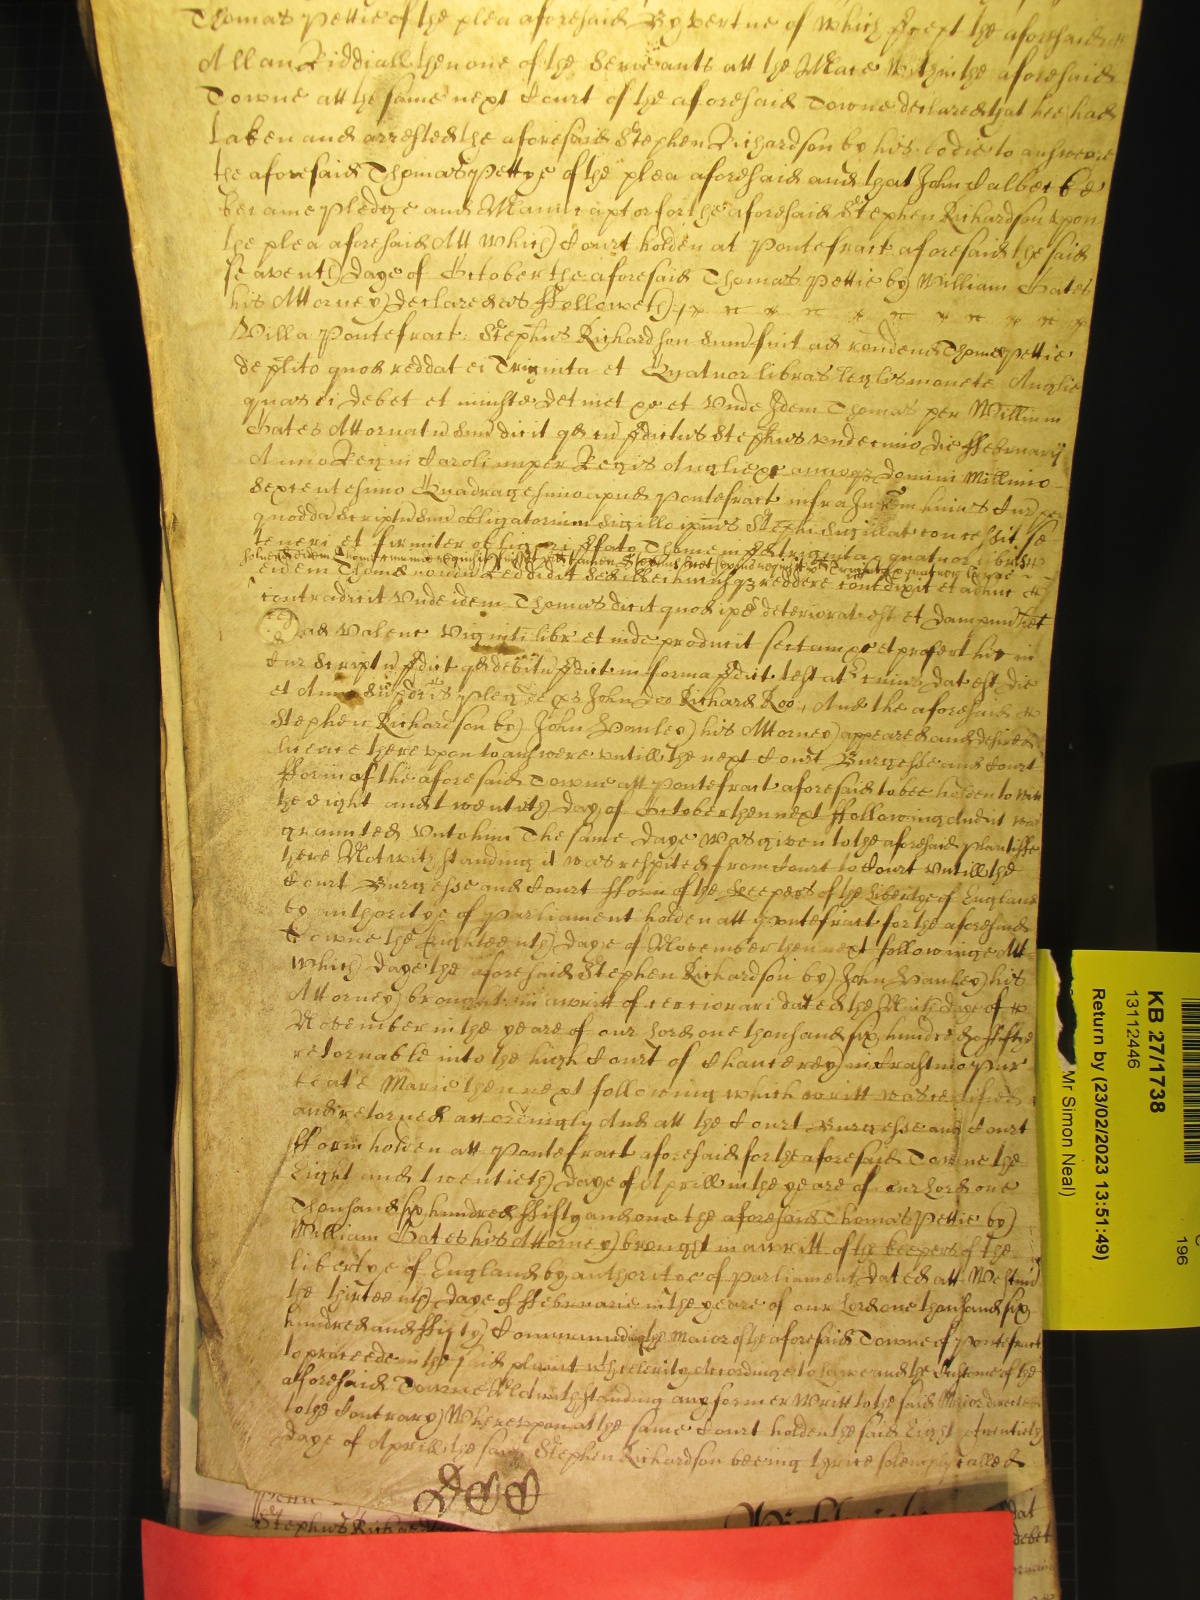 Thomas Pettie of the plea aforesaid By vertue of which p̱cept the aforesaid
Allan Riddiall then one of the Serieants att the Mace within the aforesaid
Towne att the same next Court of the aforesaid Towne declared that hee had
taken and arrested the aforesaid Stephen Richardson by his bodie to answere
the aforesaid Thomas Pettye of the plea aforesaid and that John
became pledge and Manucaptor for the aforesaid Stephen Richardson upon
the plea aforesaid Att which Court holden at Pontefract aforesaid the said
seaventh daye of October the aforesaid Thomas Pettie by William Oates
his Attorney declared as ffolloweth
Villa Pontefract: Stephus Richardson sum fuit ad rendend Thome Pettie
de plito quod reddat ei Triginta et Quatuor libras leglis monete Anglie
quas ei debet et iniuste detinet &c et Unde Idem Thomas per Willim
Oates Attornatu suu dicit qd cu p̱dictus Stephus undecimo die ffebruarij
Anno Regni Caroli nuper Regis Anglie &c annoq Domini Millimo
Sexcentesimo Quadragesimo apud Pontefract infra Jur huius Cur per
quoddā Scriptū suū obligatorium Sigillo ipius Stephi Sigillat concessit se
teneri et firmiter obligari p̱fato Thome in p̱d triginta & quatuor libris
eidem Thome nondū reddidit sed ill ei hucusq reddere contradixit et adhuc
contradicit Unde idem Thomas dicit quod ipe deteriorat est et dampnu het
ad Valenc Viginti libr et inde producit sectam &c et profert hic in
Cur Script p̱dict qd debitu p̱dict in forma p̱dict testat Cuius dat est die
et Anno supdcis pleg de ps John Doo Richard Roo, And the aforesaid
Stephen Richardson by John his Attorney appeared and desired
licence thereupon to answere untill the next Court Burgesse and Court
fforin of the aforesaid Towne att Pontefract aforesaid to bee holden to witt
the eight and twentith day of October then next ffollowing And it was
graunted unto him The same daye was given to the aforesaid plantiffe
there Notwithstanding it was respited from Court to Court untill the
Court Burgesse and Court fforin of the Keepers of the libertye of England
by authoritye of Parliament holden att Pontefract for the aforesaid
Towne the Eighteenth daye of November then next followinge Att
which daye the aforesaid Stephen Richardson by John his
Attorney brought in a writt of certiorari dated the daye of
November in the yeare of our Lord one thousand six hundred & fiftye
retornable into the high Court of Chancerey in Crastino Pur
beate Marie then next following which writt was certified
and retorned accordingly And att the Court Burgesse and Court
fforin holden att Pontefract aforesaid for the aforesaid Towne the
Eight and twentieth daye of Aprill in the yeare of our Lord one
Thousand six hundred ffifty and one the aforesaid Thomas Pettie by
William Oates his Attorney brought in a writt of the keepers of the
libertye of England by authoritye of Parliament dated att Westmr
the thirteenth daye of ffebruarie in the yeare of our Lord one thousand six
hundred and ffifty Commanding the Maior of the aforesaid Towne of Pontefract
to proceede in the said plaint wth celerity accordinge to lawe and the Custome of the
aforesaid Towne Notwithstanding any former Writt to the said Maior directed
to the Contrary Whereupon at the same Court holden the said Eight & twentieth
daye of Aprill the said Stephen Richardson beeing thrice solemply called
KB 27/1738
13112446
Return by (23/02/2023 13:51:49)
Mr Simon Neal)
196